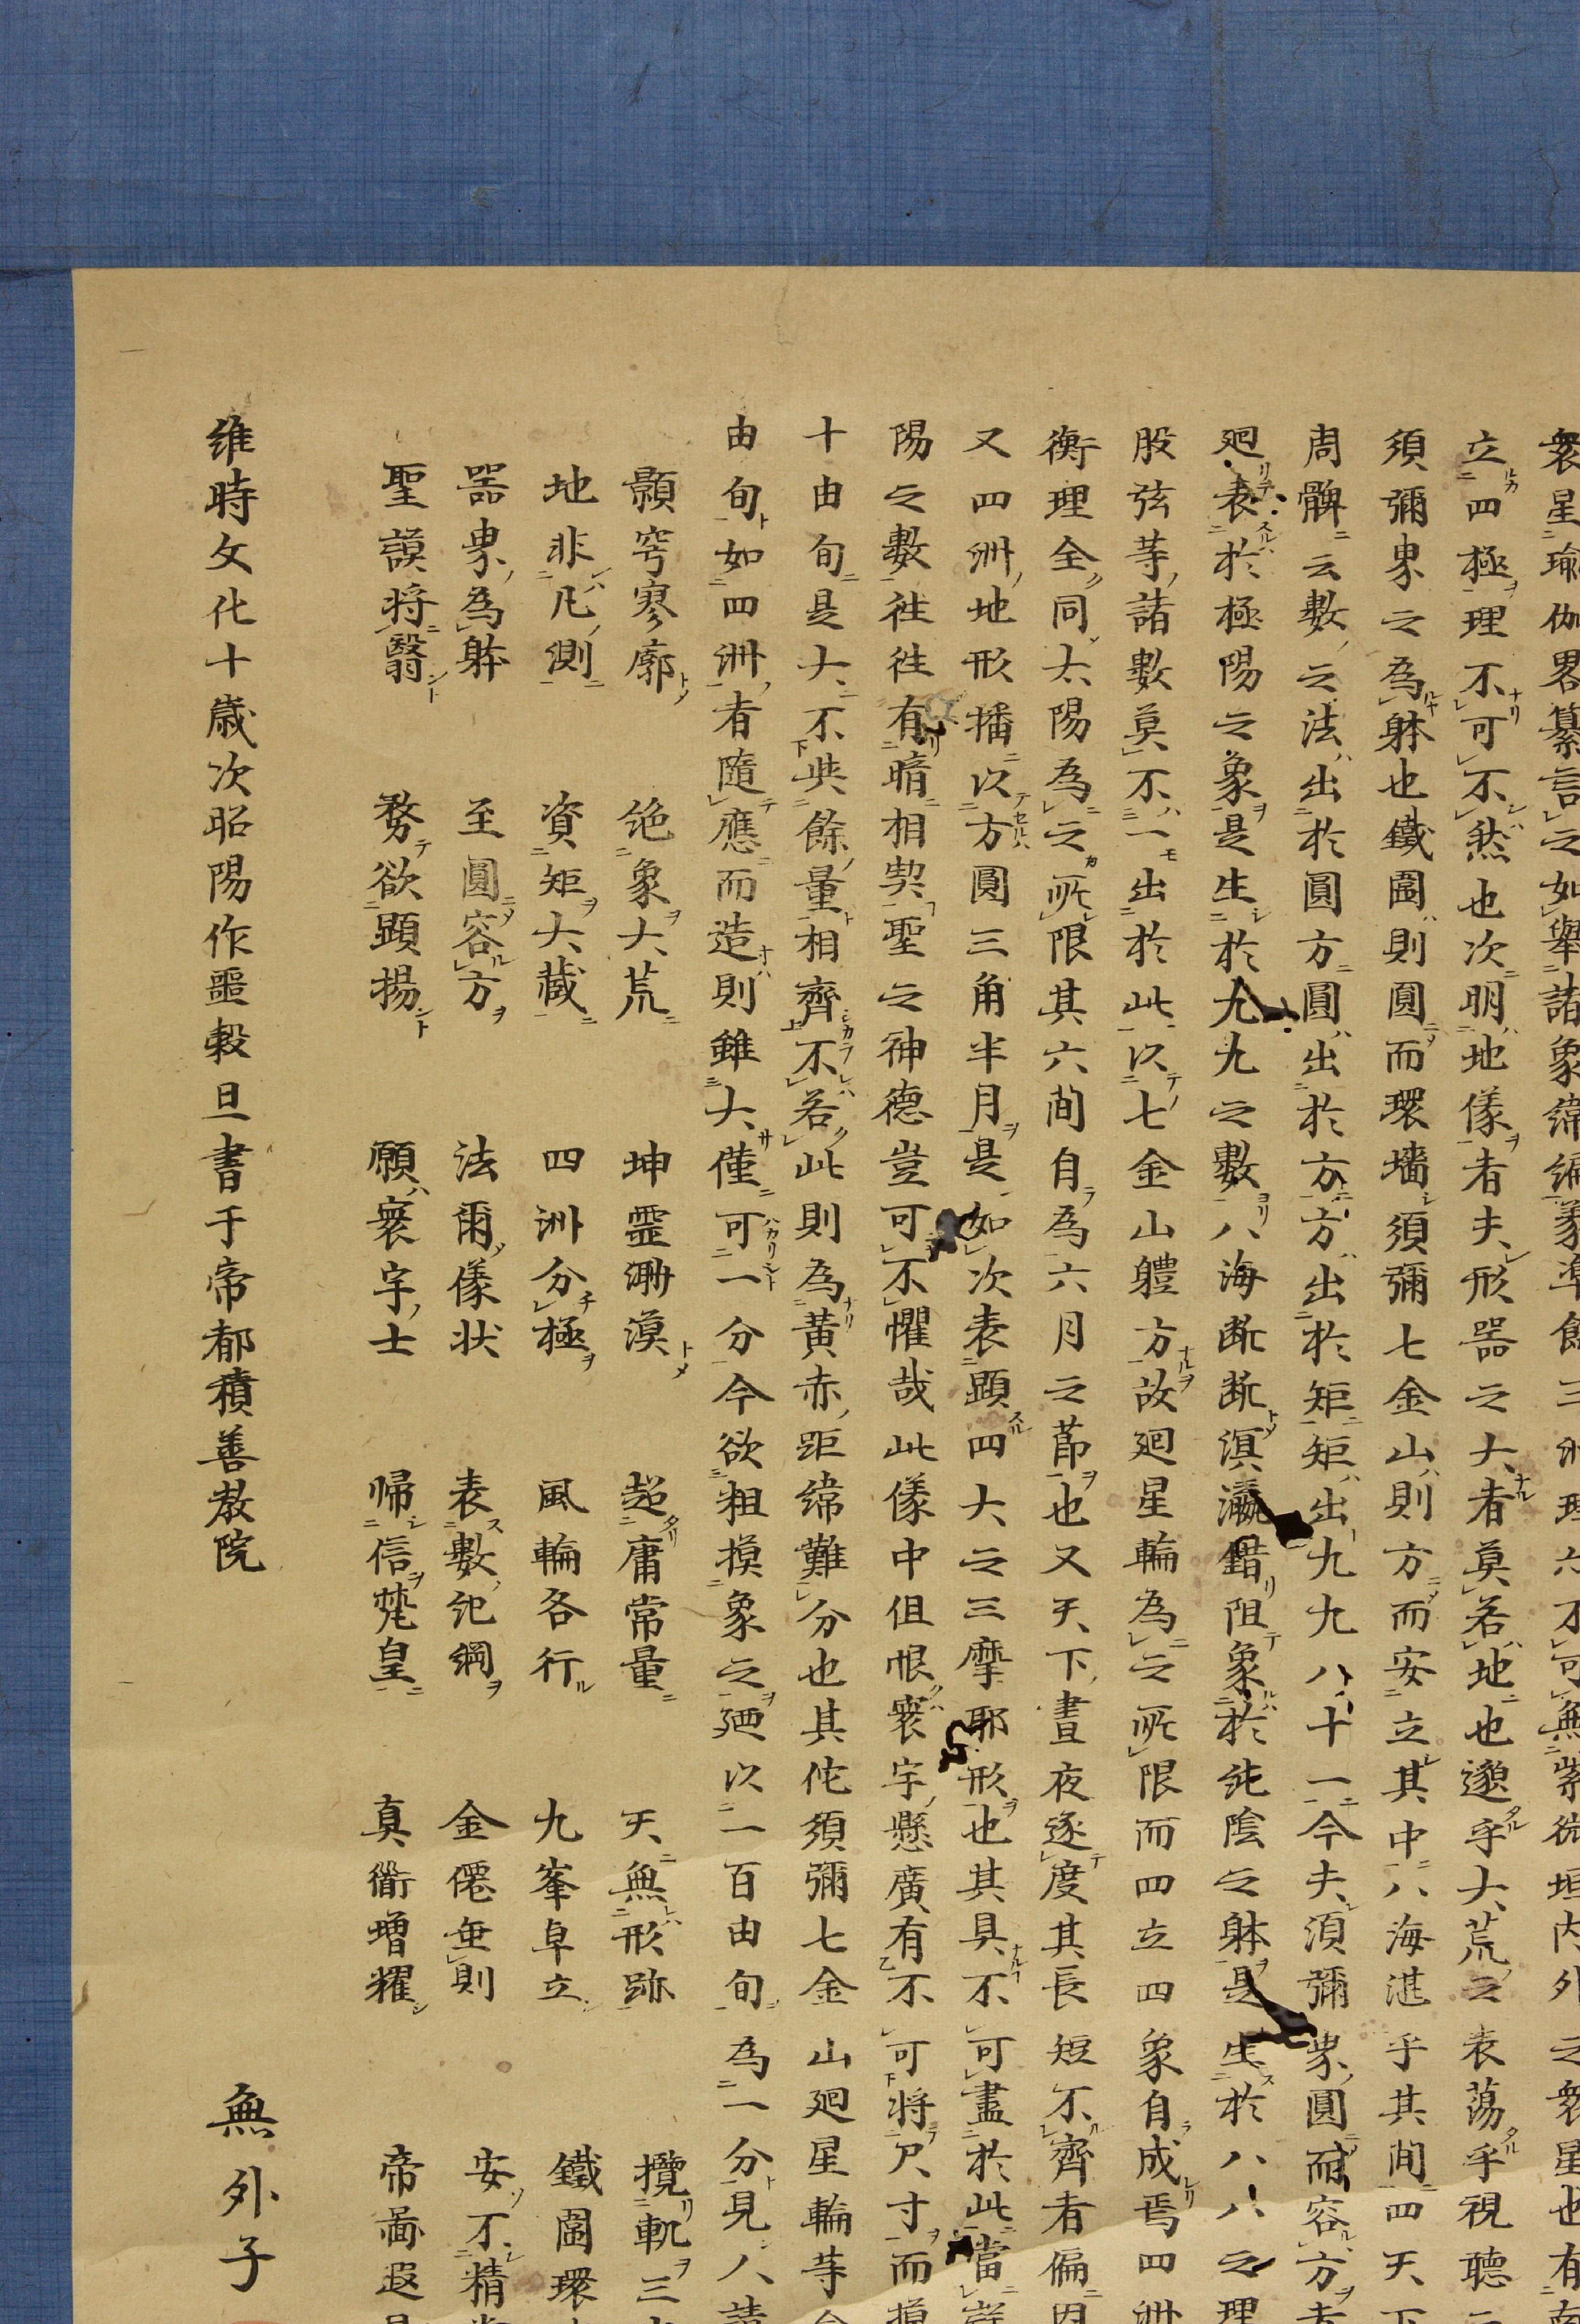 衆星瑜伽畧纂言之如舉諸象緯編彖準餘三洲理亦不可無紫微垣内外之衆星也有
立四極理不可不然也次明地儀者夫形器之大者莫若地也邈乎大荒之表蕩乎視聴
須彌界之為躰也鐵圍則圓而環墻須彌七金山則方而安立其中八海湛乎其間四天下
周髀云數之法出於圓方圓出於方方出於矩矩出九九八十一今夫須彌界圓而容方
廻表於極陽之象是生於九九之數八海断断溟瀛錯阻象於純陰之躰是生於八八之理
股弦等諸數莫不一出於此以七金山軆方故廻星輪為之所限而四立四象自成焉四洲
衡理全同太陽為之所限其六間自為六月之節也又天下晝夜逐度其長短不齊者偏因
又四洲地形播以方圓三角半月是如次表顕四大之三摩耶形也其具不可盡於此當
陽之數往往有暗相契聖之神徳豈可不懼哉此儀中但恨寰宇懸廣有不可將尺寸而摸
十由旬是大不與餘量相齊不若此則為黄赤距緯難分也其佗須彌七金山廻星輪等
由旬如四洲者隨應而造則雖大僅可一分今欲粗摸象之廼以一百由旬為一分見人請
顥穹寥廓 絶象大荒 坤霊渺漠 超庸常量 天無形跡 攬軌三
地非凡測 資矩大蔵 四洲分極 風輪各行 九峯卓立 鐵圍環
器界為躰 至圓容方 法爾儀状 表數紀綱 金僊垂則 安不精
聖謨將翳 務欲顕揚 願寰宇士 帰信梵皇 真衢増耀 帝畵遐
維時文化十歳次昭陽作噩穀旦書于帝都積善教院 無外子